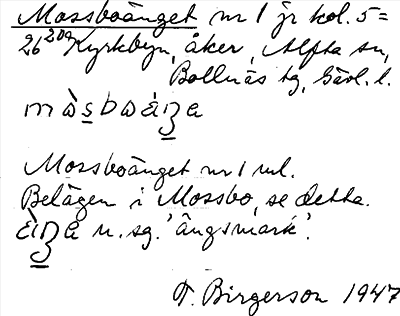 Mossboänget nr 1 jr kol. 5=
26²⁰ᵃ Kyrkbyn, åker, Alfta sn,
Bollnäs tg, Gävl. l.
Mossboänget nr 1 ml.
Belägen i Mossbo, se detta.
n. sg. 'ängsmark'.
T. Birgerson 1947